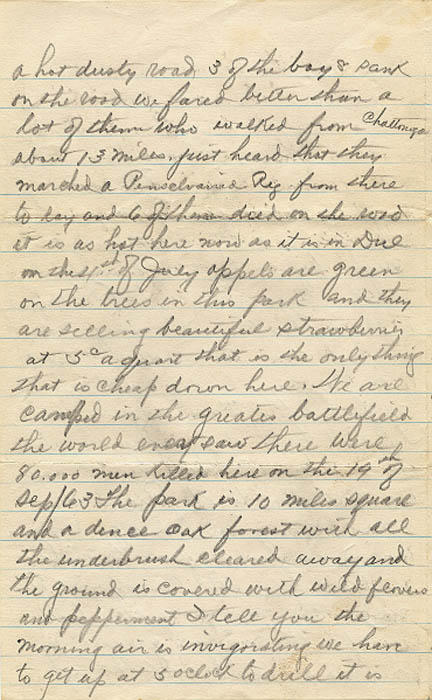 a hot dusty road 3 of the boys sank
on the road we fared better than a
lot of them who walked from Challonga
about 13 miles. just heard that they
marched a Penselvania Reg from there
to day and 6 of them died on the road
it is as hot here now as it is in Dul
on the 1st of July appels are green
on the trees in this park and they
are selling beautiful strawberries
at 5c a quart that is the only thing
that is cheap down here. We are
camped in the greates battlefield
the world ever saw there were
80.000 men killed here on the 19th of
Sep/63 The park is 10 miles square
and a dence oak forest with all
the underbrush cleared away and
the ground is covered with wild flowers
and pepperment I tell you the
morning air is invigorating we have
to get up at 5 oclock to drill it is